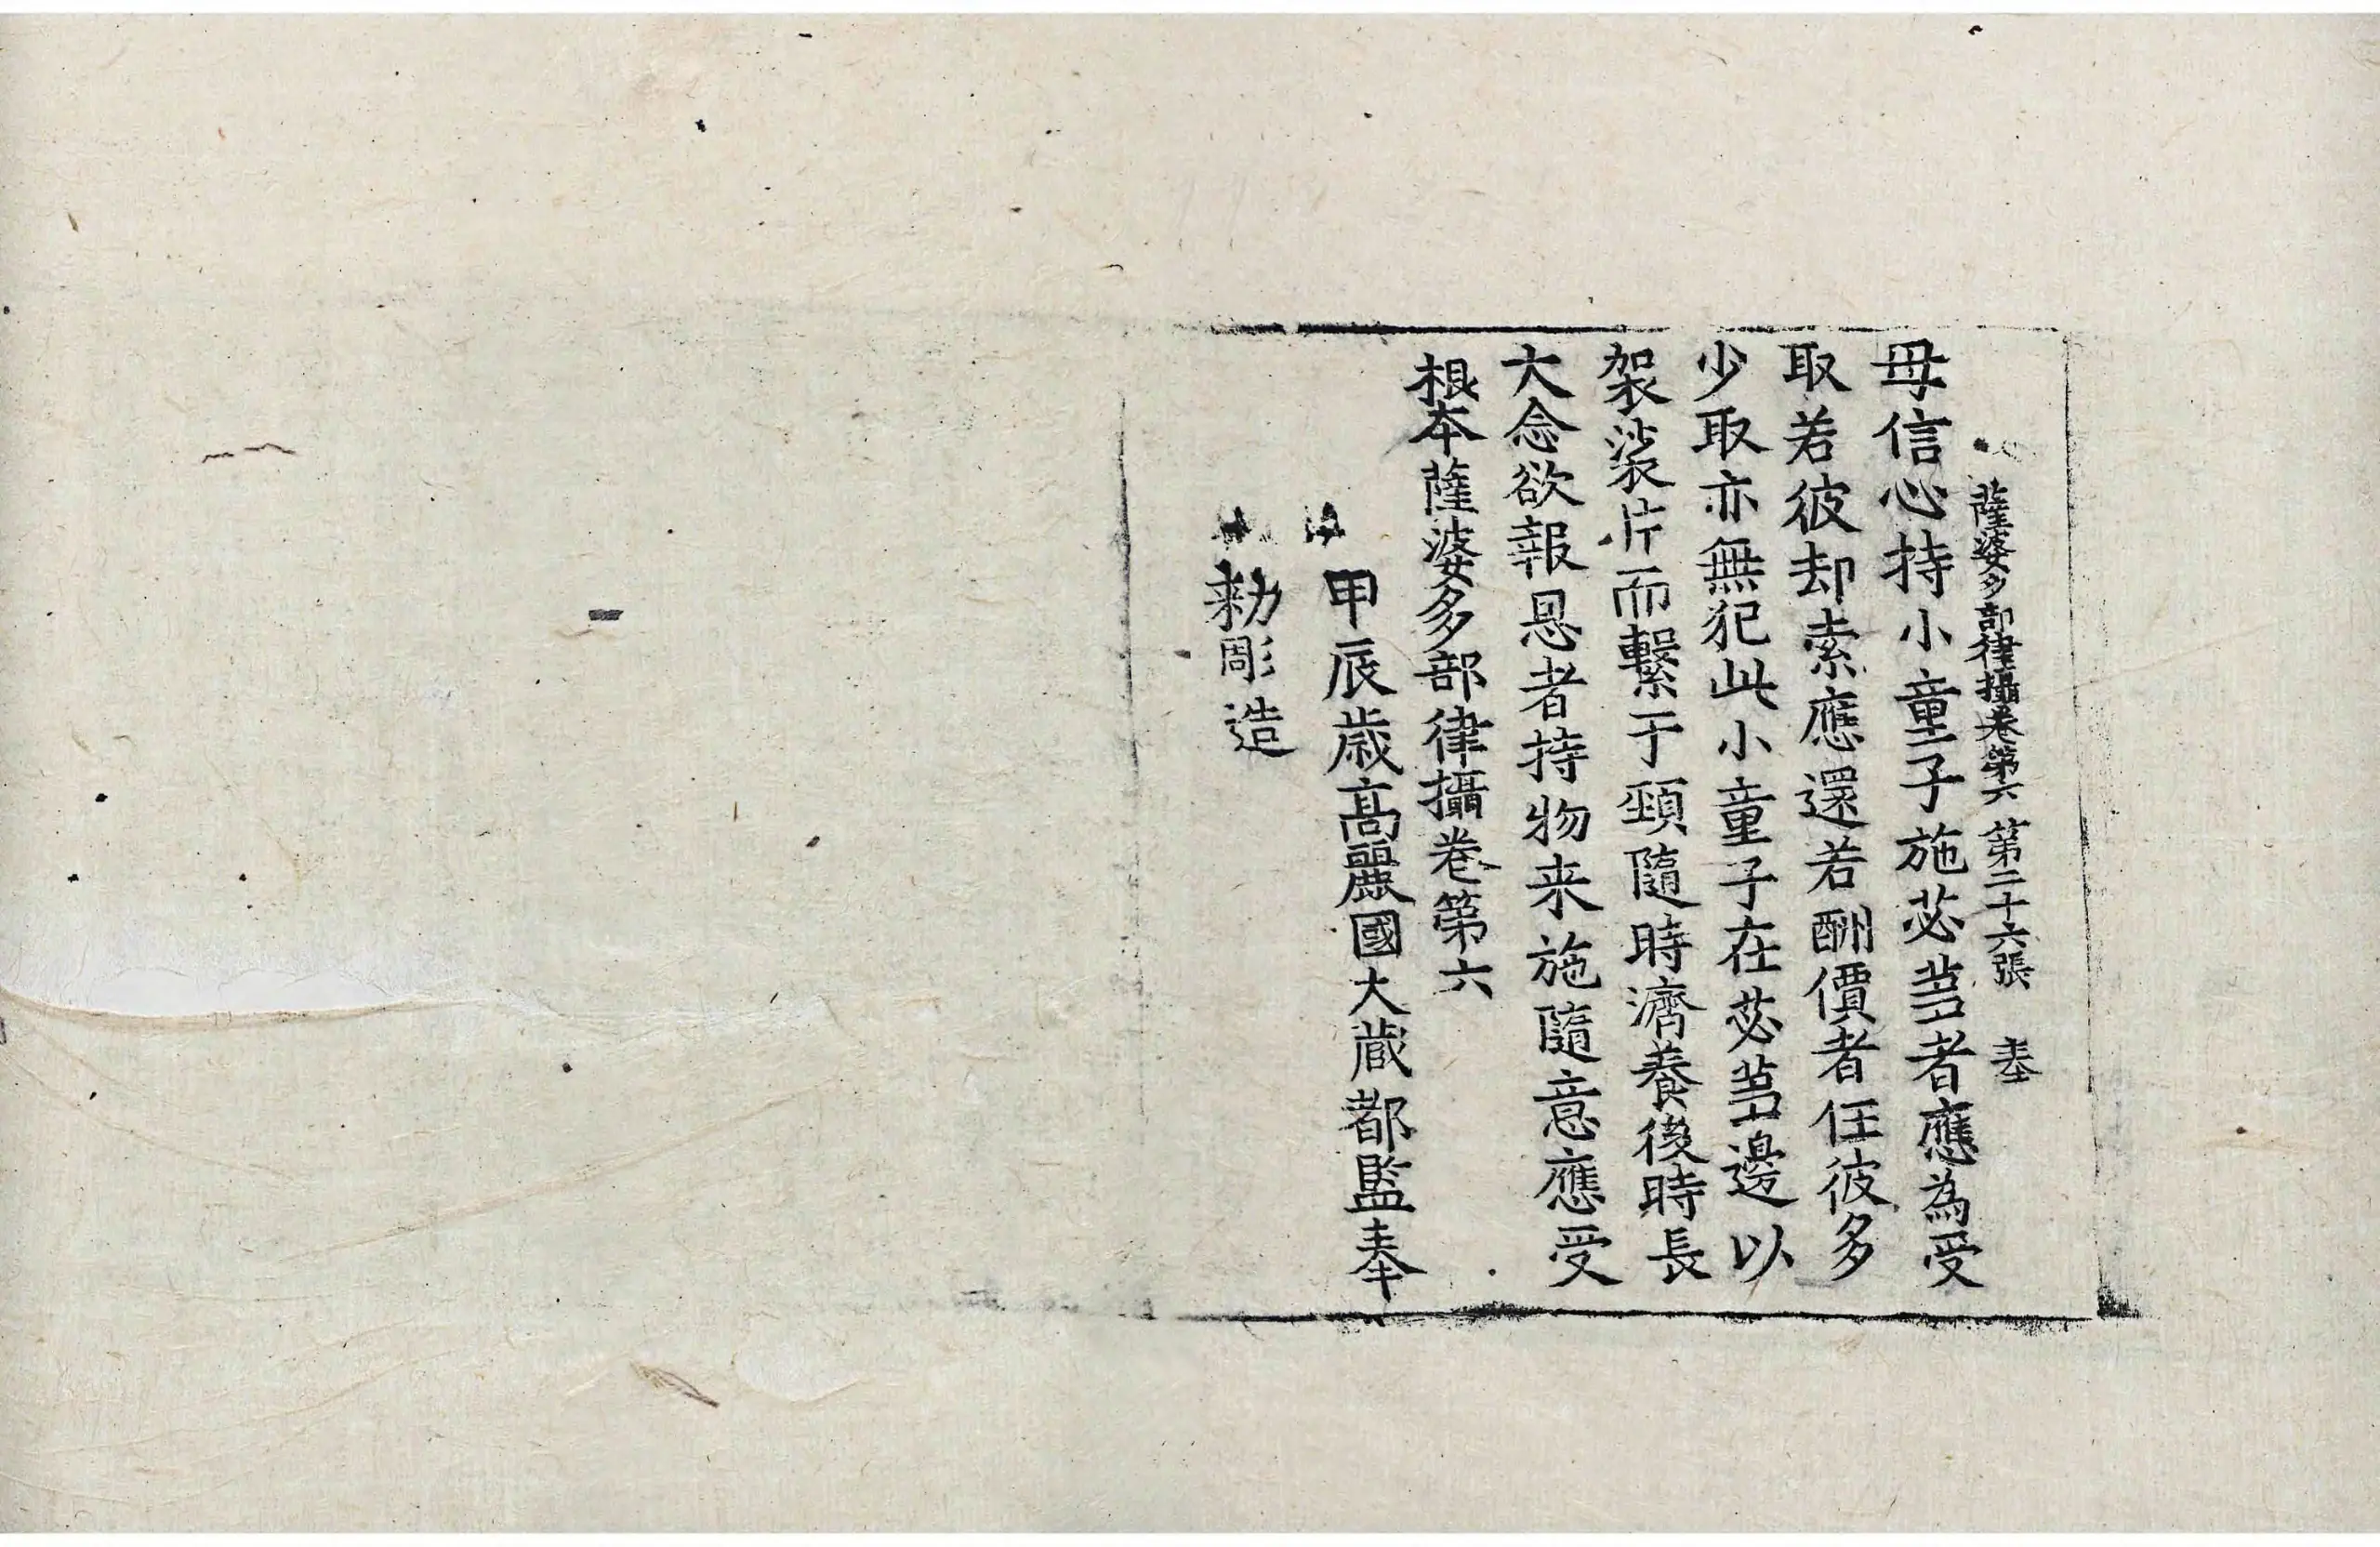 薩婆多部律攝卷第六 第二十六張 奉
母信心持小童子施苾芻者應為受
取若彼却索應還若酬價者任彼多
少取亦無犯此小童子在苾芻邊以
袈裟片而繫于頸隨時濟養後時長
大念欲報恩者持物来施隨意應受
根本薩婆多部律攝卷第六
甲辰歳高麗國大蔵都監奉
勑彫造